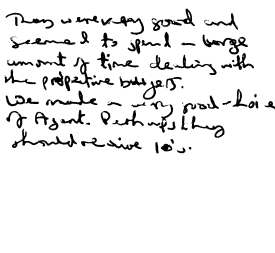 They were very good and
seemed to spend a large
amount of time dealing with
the prospective buyers.
We made a very good choice
of Agent. Perhaps they
should receive 10's.